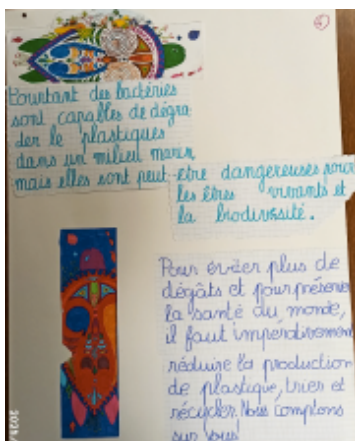 Pourtant des bactéries
sont capables de dégra
der le plastiques
dans un milieu marin
mais elles sont peut-être dangereuses pour
les êtres vivants et
la biodiversité.
Pour éviter plus de
dégâts et pour préserver
la santé du monde,
il faut impérativement
réduire la production
de plastique, trier et
recycler. Nous comptons
sur vous!